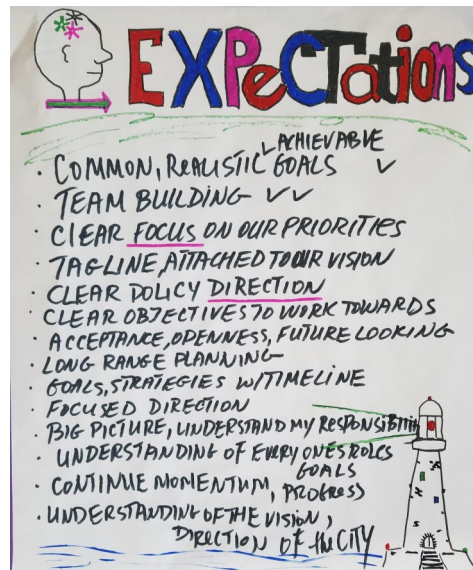 EXPeCTations
ACHIEVABLE
• COMMON, REALISTIC GOALS ✓
• TEAM BUILDING ✓✓
• CLEAR FOCUS ON OUR PRIORITIES
• TAGLINE, ATTACHED TO OUR VISION
• CLEAR POLICY DIRECTION
• CLEAR OBJECTIVES TO WORK TOWARDS
• ACCEPTANCE, OPENNESS, FUTURE LOOKING
• LONG RANGE PLANNING
• GOALS, STRATEGIES W/TIMELINE
• FOCUSED DIRECTION
• BIG PICTURE, UNDERSTAND MY RESPONSIBILITIES
• UNDERSTANDING OF EVERYONES ROLES
GOALS
• CONTINUE MOMENTUM, PROGRESS
• UNDERSTANDING OF THE VISION,
DIRECTION OF the CITY